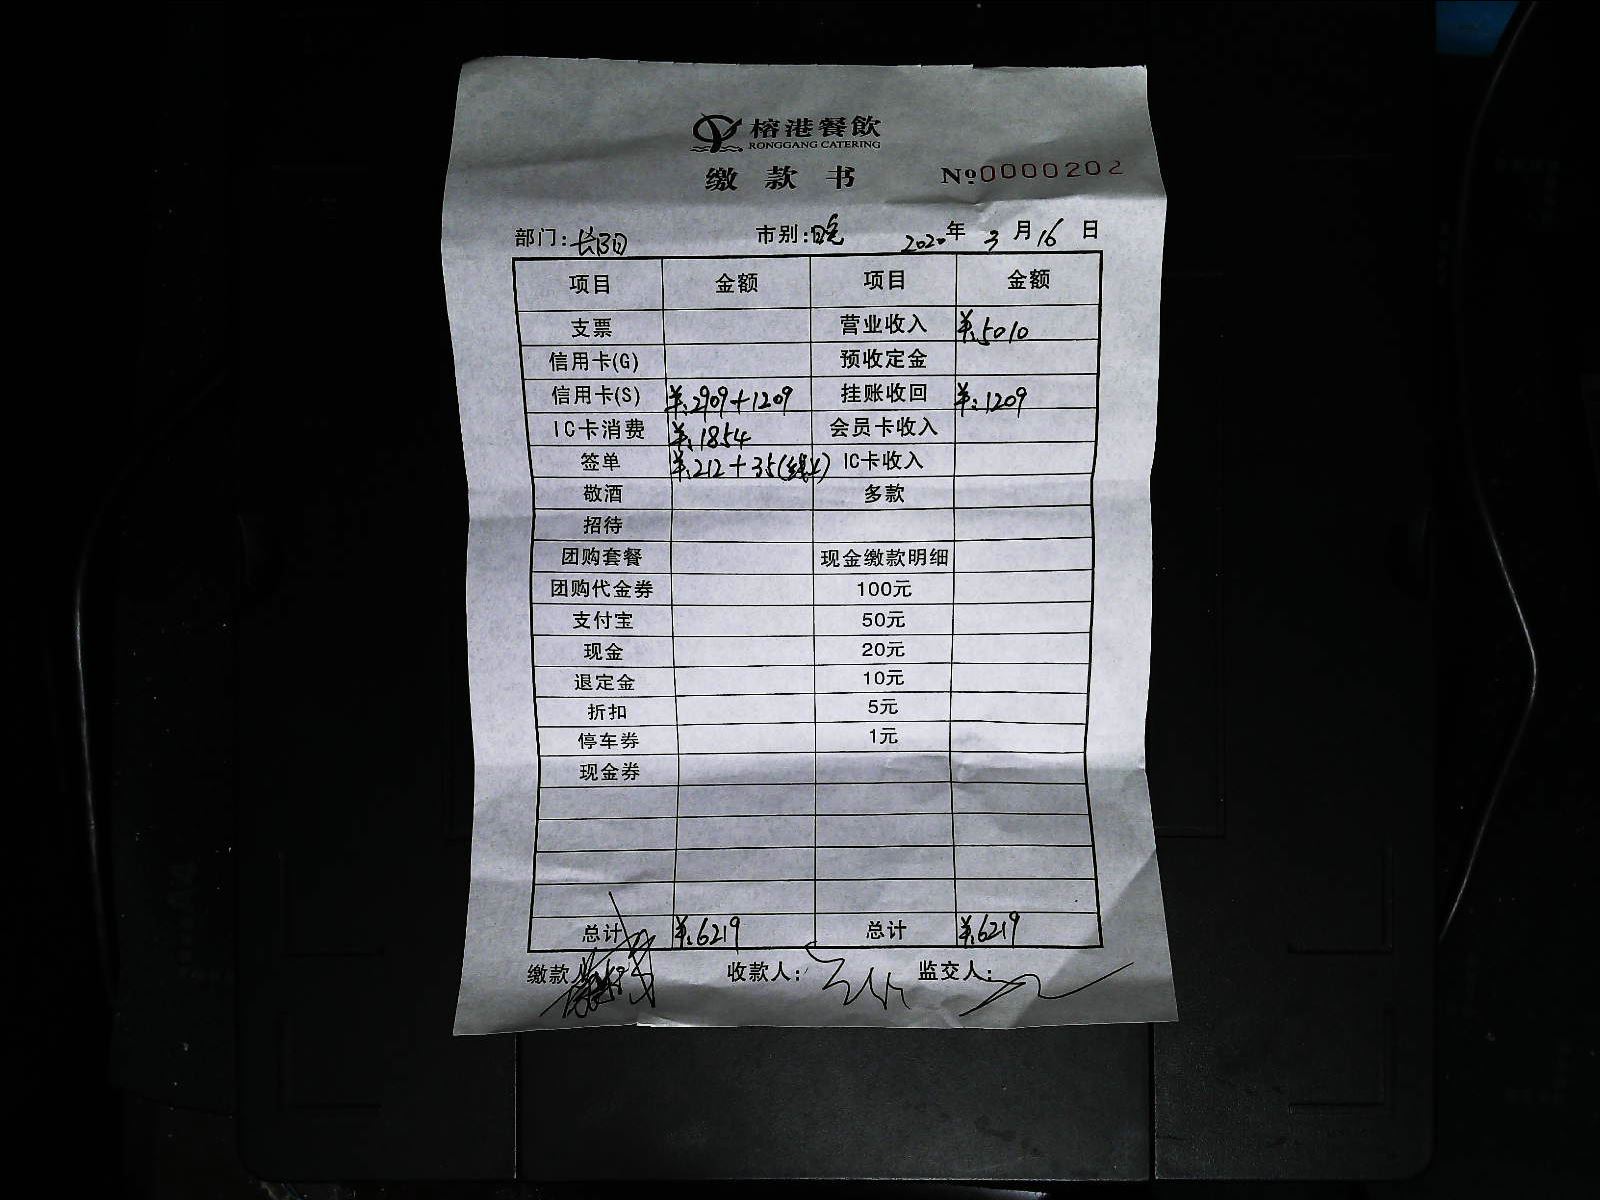 榕港餐飲
RONGGANG CATERING
缴款书 №0000202
部门:长阳 市别:晚 2020年3月16日
项目 金额 项目 金额
支票 营业收入 ¥:5010
信用卡(G) 预收定金
信用卡(S) ¥:2909+1209 挂账收回 ¥:1209
IC卡消费 ¥:1854 会员卡收入
签单 ¥:212+35 IC卡收入
敬酒 多款
招待
团购套餐 现金缴款明细
团购代金券 100元
支付宝 50元
现金 20元
退定金 10元
折扣 5元
停车券 1元
现金券
总计 ¥:6219 总计 ¥:6219
缴款人 收款人: 监交人: